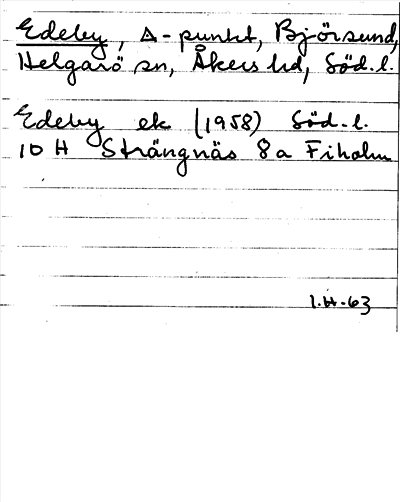 Edeby, △-punkt, Björsund,
Helgarö sn, Åkers hd, Söd.l.
Edeby ek (1958) Söd.l.
10 H Strängnäs 8a Fiholm
I.H-63